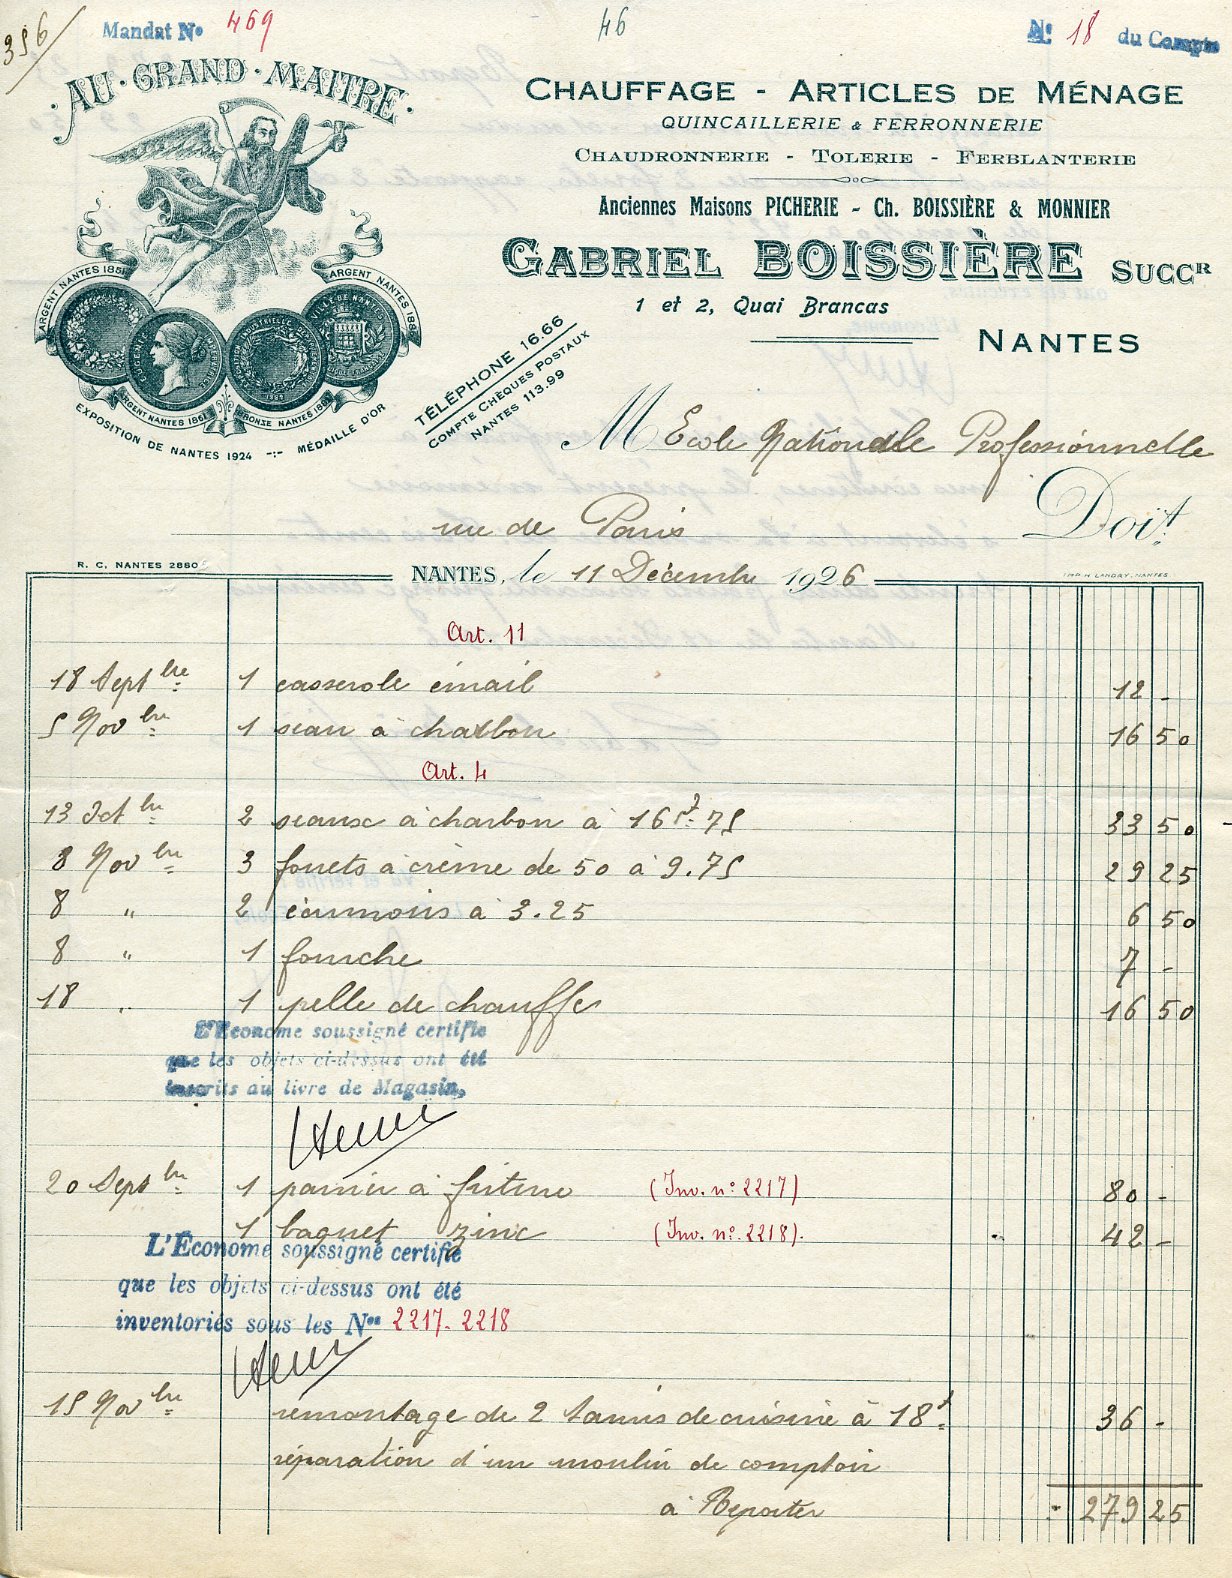 356
Mandat No 469
46
No 18 du Compte
AU · GRAND · MAITRE ·
ARGENT NANTES 1851
ARGENT NANTES 188
ARGENT NANTES 1861
BRONZE NANTES 186
EXPOSITION DE NANTES 1924 -:- MÉDAILLE D'OR
CHAUFFAGE - ARTICLES DE MÉNAGE
QUINCAILLERIE & FERRONNERIE
CHAUDRONNERIE - TOLERIE - FERBLANTERIE
Anciennes Maisons PICHERIE - Ch. BOISSIÈRE & MONNIER
GABRIEL BOISSIÈRE SUCCR
1 et 2, Quai Brancas
NANTES
TÉLÉPHONE 16.66
COMPTE CHÈQUES POSTAUX
NANTES 113.99
M Ecole Nationale Professionnelle
rue de Paris Doit
R. C. NANTES 2880
NANTES, le 11 Décembre 1926
IMP. H. LANDRY, NANTES
Art. 11
18 Septbre 1 casserole émail 12 -
5 Novbre 1 seau à charbon 16 50
Art. 4
13 Octbre 2 seaux à charbon à 16f.75 33 50
8 Novbre 3 fouets à crème de 50 à 9.75 29 25
8 " 2 écumoirs à 3.25 6 50
8 " 1 fourche 7 -
18 " 1 pelle de chauffe 16 50
L'Econome soussigné certifie
que les objets ci-dessus ont été
inscrits au livre de Magasin,
20 Septbre 1 panier à friture (Inv. n° 2217) 80 -
1 baquet zinc (Inv. n° 2218). 42 -
L'Économe soussigné certifie
que les objets ci-dessus ont été
inventoriés sous les Nos 2217-2218
15 Novbre remontage de 2 tamis de cuisine à 18f 36 -
réparation d'un moulin de comptoir
à Reporter 279 25